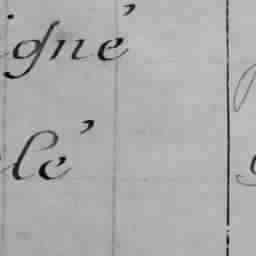 igné
lé